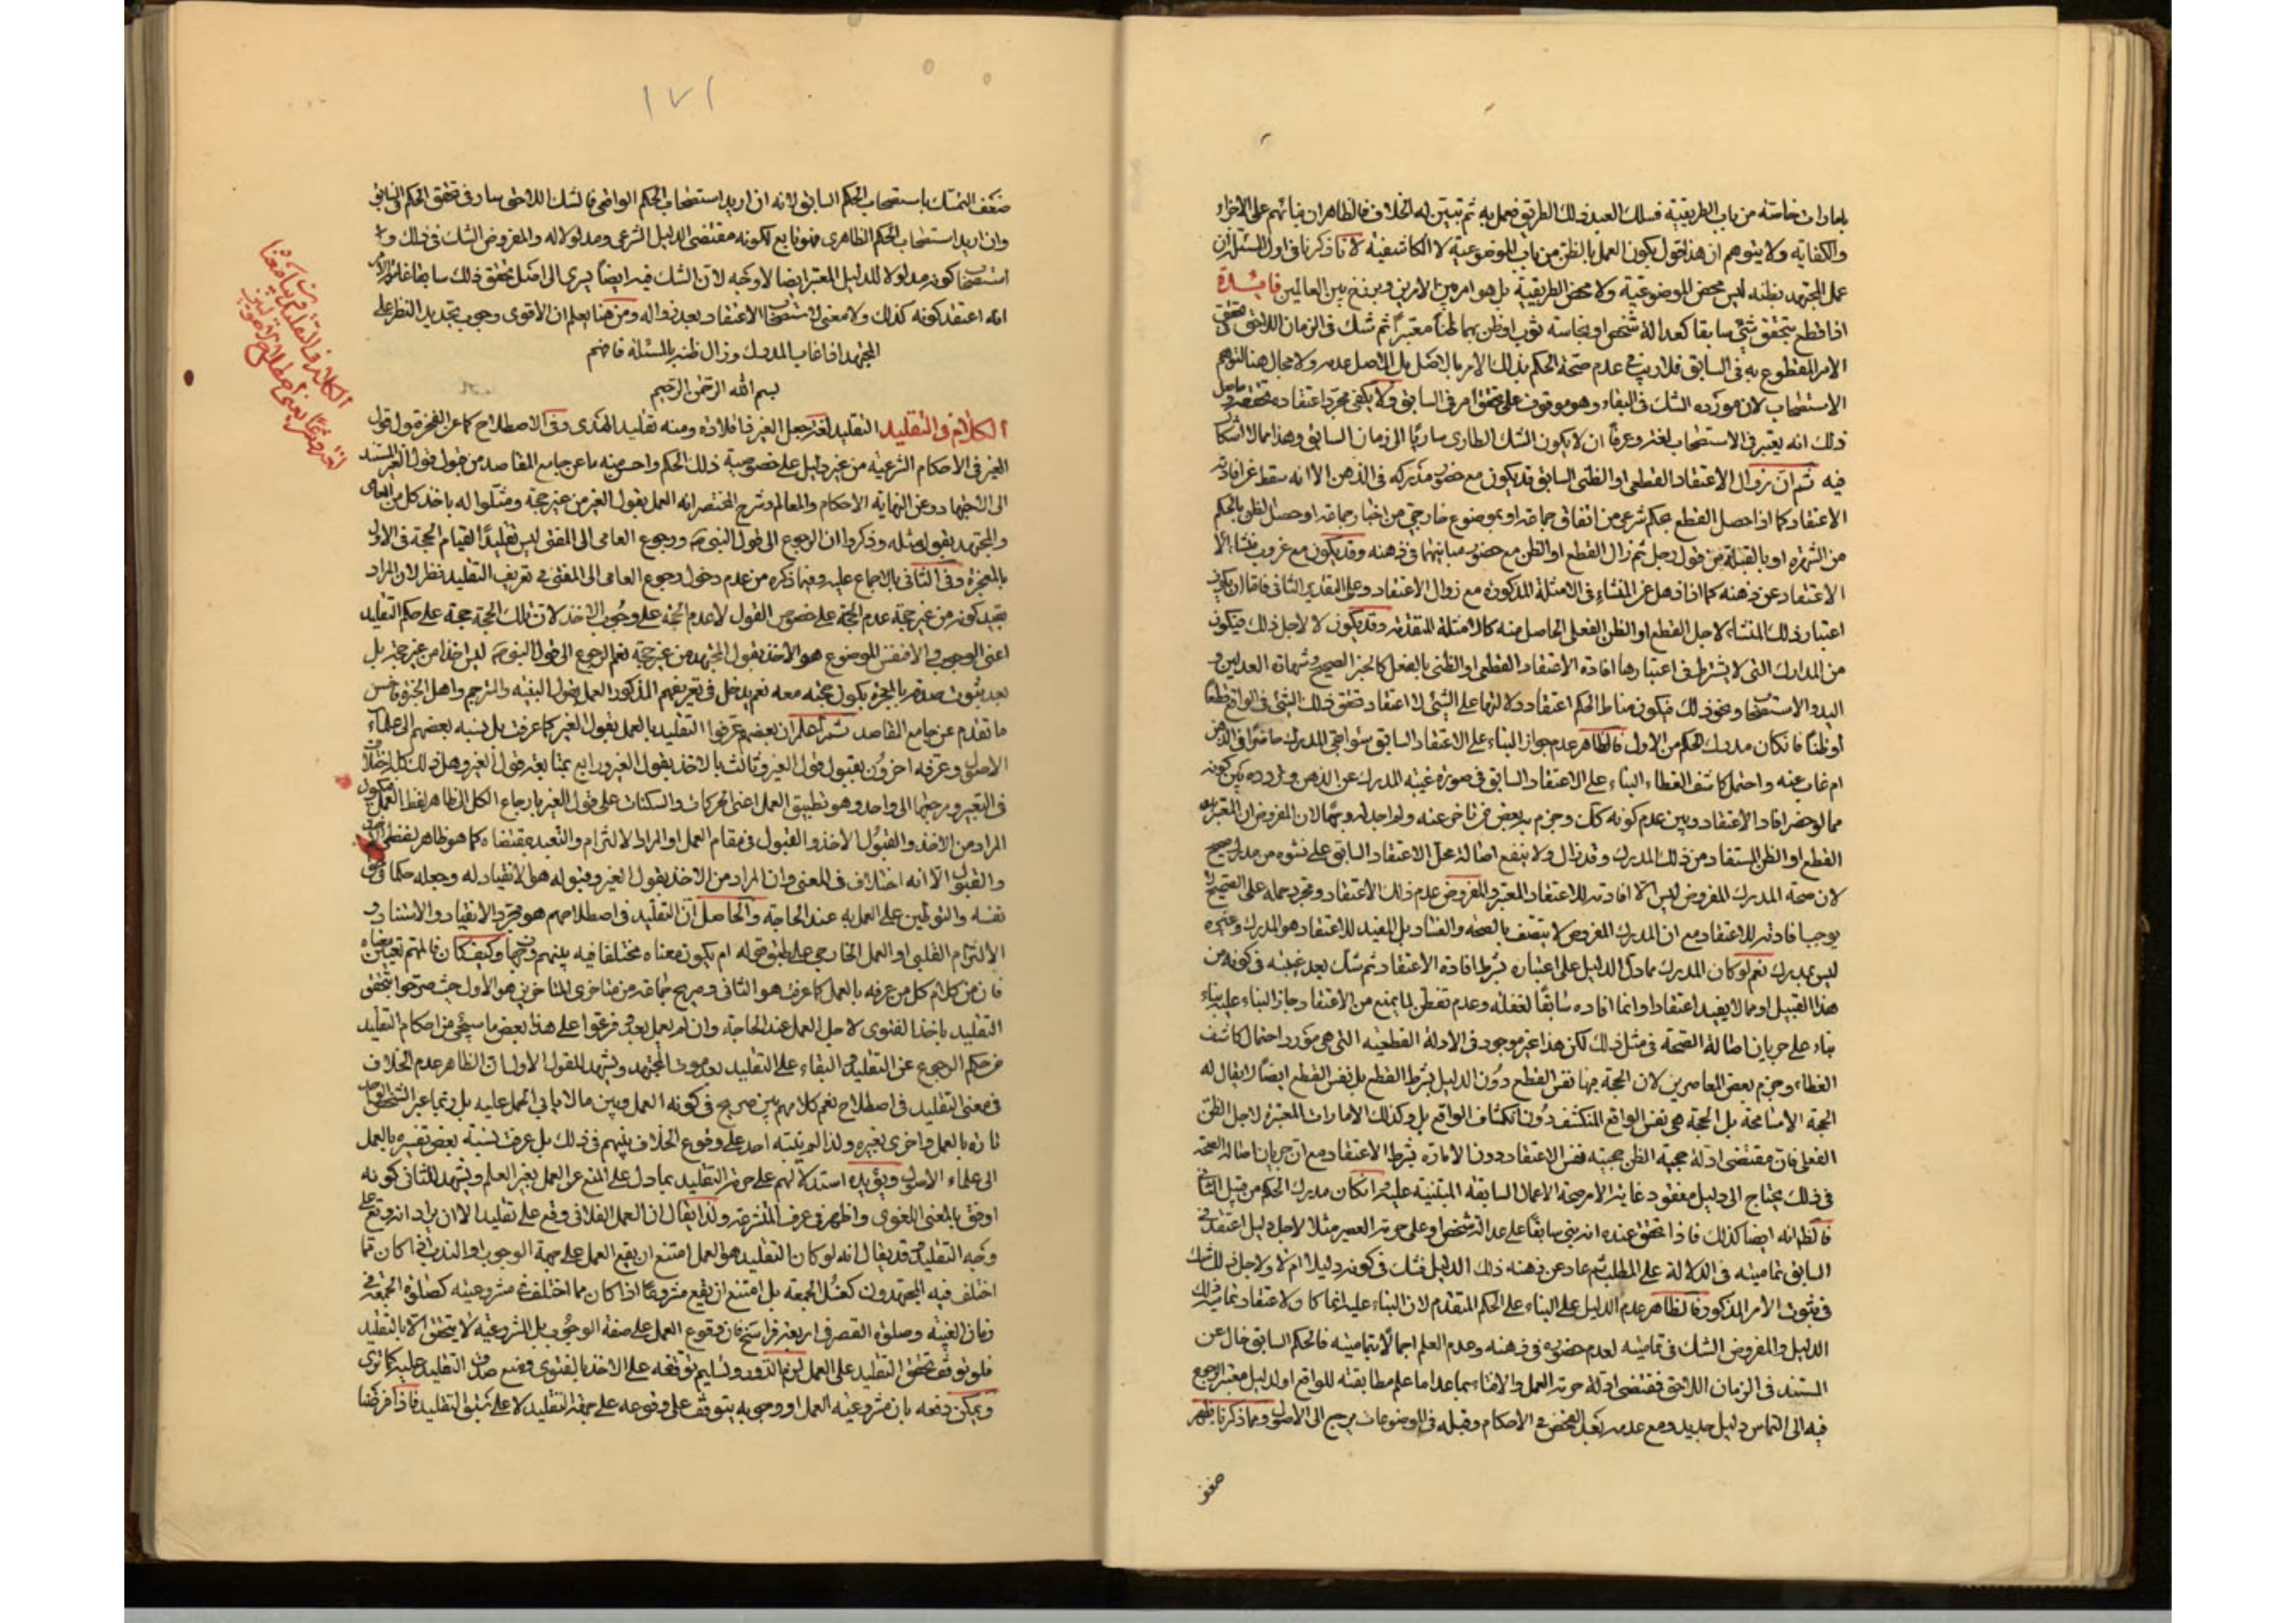 بامارات خاصة من باب الطريقية فسلك العبد ذلك الطريق فعمل به ثم تبين له الخلاف فالظاهران بنائهم على الاجزاء
والكفاية ولا يتوهم ان هذا قول بكون العمل بالظن من باب الموضوعية لا الكاشفية لما ذكرنا فى اول المسئلة ان
عمل المجتهد بظنه ليس محض الموضوعية ولا محض الطريقية بل هو امر بين الامرين وبرزخ بين العالمين فائدة
اذا قطع بتحقق شئ سابقا كعدالة شخص او نجاسة ثوب او ظن بهما ظنا معتبرا ثم شك فى الزمان اللاحق تحقق
الامر المقطوع به فى السابق فلا ريب فى عدم صحة الحكم بذلك الامر بالاصل بل الاصل عدمه ولا مجال هنا لتوهم
الاستصحاب لان مورده الشك فى البقاء وهو موقوف على تحقق امر فى السابق ولا يكفى مجرد اعتقاد تحققه
ذلك انه يعتبر فى الاستصحاب لغة وعرفا ان لا يكون الشك الطارى ساريا الى زمان السابق وهذا مما لا اشكال
فيه ثم ان زوال الاعتقاد القطعى او الظنى السابق قد يكون مع حضور مدركه فى الذهن الا انه سقط عن افادته
الاعتقاد كما اذا حصل القطع بحكم شرعى من اتفاق جماعة او بموضوع خارجى من اخبار جماعة او حصل الظن بالحكم
من الشهرة او بالقبلة من قول رجل ثم زال القطع او الظن مع حضور مباينهما فى ذهنه وقد يكون مع غروب منشاء
الاعتقاد عن ذهنه كما اذا ذهل عن المنشاء فى الامثلة المذكورة مع زوال الاعتقاد وعلى التقدير الثانى فاما ان يكون
اعتبار ذلك المنشاء لاجل القطع او الظن الفعلى الحاصل منه كالامثلة المتقدمة وقد يكون لا لاجل ذلك فيكون
من المدارك التى لا يشترط فى اعتبارها افادة الاعتقاد القطعى او الظنى بالفعل كالخبر الصحيح وشهادة العدلين و
اليد والاستصحاب ونحو ذلك فيكون مناط الحكم اعتقاد دلالتها على الشئ لا اعتقاد تحقق ذلك الشئ فى الواقع قطعا
او ظنا فان كان مدرك الحكم من الاول فالظاهر عدم جواز البناء على الاعتقاد السابق سواء بقى المدرك حاضرا فى الذهن
ام غاب عنه واحتمل كاشف الغطاء البناء على الاعتقاد السابق فى صورة غيبة المدرك عن الذهن وتردده بين كونه
مما لو حضر افاد الاعتقاد وبين عدم كونه كك وجزم به بعض من تاخر عنه ولم اجد له وجها لان المفروض ان المعتبر
القطع او الظن المستفاد من ذلك المدرك وقد زال ولا ينفع اصالة حمل الاعتقاد السابق على نشوه من مدرك صحيح
لان صحة المدرك المفروض ليس الا افادته للاعتقاد المعتبر والمفروض عدم ذلك الاعتقاد ومجرد حمله على الصحيح لا
يوجب افادته للاعتقاد مع ان المدرك المفروض لا يتصف بالصحة والفساد بل المفيد للاعتقاد هو المدرك وغيره
ليس بمدرك نعم لو كان المدرك مما دل الدليل على اعتباره بشرط افادة الاعتقاد ثم شك بعد غيبته فى كونه من
هذا القبيل او مما لا يفيد اعتقادا وانما افاده سابقا لغفلة وعدم تفطن لما يمنع من الاعتقاد جاز البناء عليه بناء
بناء على جريان اصالة الصحة فى مثل ذلك لكن هذا غير موجود فى الادلة القطعية التى هى مورد احتمال كاشف
الغطاء وجزم بعض المعاصرين لان الحجة فيها نفس القطع دون الدليل بشرط القطع بل نفس القطع ايضا لا يقال له
الحجة الا مسامحة بل الحجة هى نفس الواقع المنكشف دون انكشاف الواقع بل وكذلك الامارات المعتبرة لاجل الظن
الفعلى فان مقتضى ادلة حجية الظن حجية نفس الاعتقاد دون الامارة بشرط الاعتقاد مع ان جريان اصالة الصحة
فى ذلك يحتاج الى دليل مفقود غاية الامر صحة الاعمال السابقة المبتنية عليه وان كان مدرك الحكم من قبيل الثانى
فالظ انه ايضا كذلك فاذا تحقق عنده انه بنى سابقا على عدالة شخص او على حرمة العصير مثلا لاجل دليل اعتقد فى
السابق تماميته فى الدلالة على المطلب ثم عاد عن ذهنه ذلك الدليل فشك فى كونه دليلا ام لا ولاجل ذلك شك
فى ثبوت الامر المذكور فالظاهر عدم الدليل على البناء على الحكم المتقدم لان البناء عليه انما كان لاعتقاد تمامية ذلك
الدليل والمفروض الشك فى تماميته لعدم حضوره فى ذهنه وعدم العلم اجمالا بتماميته فالحكم السابق خال عن
المستند فى الزمان اللاحق فمقتضى ادلة حرمة العمل والافتاء بما عدا ما علم مطابقته للواقع او لدليل معتبر الرجوع
فيه الى التماس دليل جديد ومع عدمه بعد الفحص فى الاحكام وقبله فى الموضوعات يرجع الى الاصول ومما ذكرنا يظهر
ضعف
١٧١
ضعف التمسك باستصحاب الحكم السابق لانه ان اريد استصحاب الحكم الواقعى فالشك اللاحق سار فى تحقق الحكم فى السابق
وان اريد استصحاب الحكم الظاهرى فهو تابع لكونه مقتضى الدليل الشرعى ومدلولا له والمفروض الشك فى ذلك و
استصحاب كونه مدلولا للدليل المعتبر ايضا لا وجه له لان الشك فيه ايضا يسرى الى اصل تحقق ذلك سابقا غاية الامر
انه اعتقد كونه كذلك ولا معنى لاستصحاب الاعتقاد بعد زواله ومن هنا يعلم ان الاقوى وجوب تجديد النظر على
المجتهد اذا غاب المدرك وزال ظنه بالمسئلة فافهم
بسم الله الرحمن الرحيم
الكلام فى التقليد التقليد لغة جعل الغير ذا قلادة ومنه تقليد الهدى وفى الاصطلاح كما عن الفخر قبول قول
الغير فى الاحكام الشرعية من غير دليل على خصوصية ذلك الحكم واحسن منه ما عن جامع المقاصد من قبول قول الغير المستند
الى الاجتهاد وعن النهاية والاحكام والمعالم وشرح المختصر انه العمل بقول الغير من غير حجة ومثلوا له باخذ كل من العامى
والمجتهد بقول مثله وذكروا ان الرجوع الى قول النبى ص ورجوع العامى الى المفتى ليس تقليدا لقيام الحجة فى الاول
بالمعجزة وفى الثانى بالاجماع عليه وفيما ذكره من عدم دخول رجوع العامى الى المفتى فى تعريف التقليد نظر لان المراد
بقيد كونه من غير حجة عدم الحجة على خصوص القول لا عدم الحجة على وجوب الاخذ لان تلك الحجة حجة على حكم التقليد
اعنى الوجوب والا فنفس الموضوع هو الاخذ بقول المجتهد من غير حجة نعم الرجوع الى قول النبى ص ليس اخذا من غير حجة بل
بعد ثبوت صدقه بالمعجزة يكون حجته معه نعم يدخل فى تعريفهم المذكور العمل بقول البينة والمترجم واهل الخبرة فاحسن
ما تقدم عن جامع المقاصد ثم اعلم ان بعضهم عرفوا التقليد بالعمل بقول الغير كما عرفت بل نسبه بعضهم الى علماء
الاصول وعرفه اخرون بقبول قول الغير وثالث بالاخذ بقول الغير ورابع بمتابعة قول الغير وهل ذلك كله اختلاف
فى التعبير ومرجعها الى واحد وهو تطبيق العمل اعنى الحركات والسكنات على قول الغير بارجاع الكل الظاهر لفظ العمل فيكون
المراد من الاخذ والقبول الاخذ والقبول فى مقام العمل او المراد الالتزام والتعبد بمقتضاه كما هو ظاهر لفظى الاخذ
والقبول او انه اختلاف فى المعنى وان المراد من الاخذ بقول الغير وقبوله هو الانقياد له وجعله حكما فى حق
نفسه والتوطين على العمل به عند الحاجة والحاصل ان التقليد فى اصطلاحهم هو مجرد الانقياد والاستناد و
الالتزام القلبى او العمل الخارجى على طبق قوله ام يكون معناه مختلفا فيه بينهم وجهان وكيف كان فالمهم تعيين معناه
فان من كلام كل من عرفه بالعمل كما عرفت هو الثانى وصريح جماعة من متاخرى المتاخرين هو الاول حيث صرحوا بتحقق
التقليد باخذ الفتوى لاجل العمل عند الحاجة وان لم يعمل بعد وفرعوا على هذا بعض ما سيجئ من احكام التقليد
من حكم الرجوع عن التقليد والبقاء على التقليد بعد موت المجتهد ويشهد للقول الاول ان الظاهر عدم الخلاف
فى معنى التقليد فى اصطلاحهم نعم كلامهم بين صريح فى كونه العمل وبين ما لا يابى الحمل عليه بل ربما عبر الشخص الواحد
تارة بالعمل واخرى بغيره ولذا لم ينبه احد على وقوع الخلاف بينهم فى ذلك بل عرفت نسبة بعض تفسيره بالعمل
الى علماء الاصول ويؤيده استدلالهم على حرمة التقليد بما دل على المنع عن العمل بغير العلم ويشهد للثانى كونه
اوفق بالمعنى اللغوى واظهر فى عرف المتشرعة ولذا يقال ان العمل الفلانى وقع على تقليد الا ان يراد انه وقع على
وجه التقليد وقد يقال انه لو كان التقليد هو العمل امتنع ان يقع العمل على جهة الوجوب او الندب اذا كان مما
اختلف فيه المجتهدون كغسل الجمعة بل امتنع ان يقع مشروعا اذا كان مما اختلف فى مشروعيته كصلوة الجمعة فى
زمان الغيبة وصلوة القصر فى اربعة فراسخ فان وقوع العمل على صفة الوجوب بل المشروعية لا يتحقق الا بالتقليد
فلو توقف تحقق التقليد على العمل لزم الدور وتسليم توقفه على الاخذ بالفتوى ومنع صدق التقليد عليه كما ترى
ويمكن دفعه بان مشروعية العمل او وجوبه يتوقف على وقوعه على جهة التقليد لا على سبق التقليد فاذا فرضنا
الكلام فى التقليد